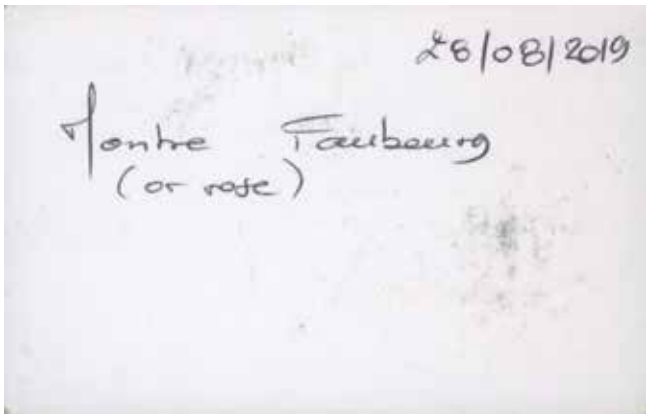 28/08/2019
Montre Faubourg
(or rose)